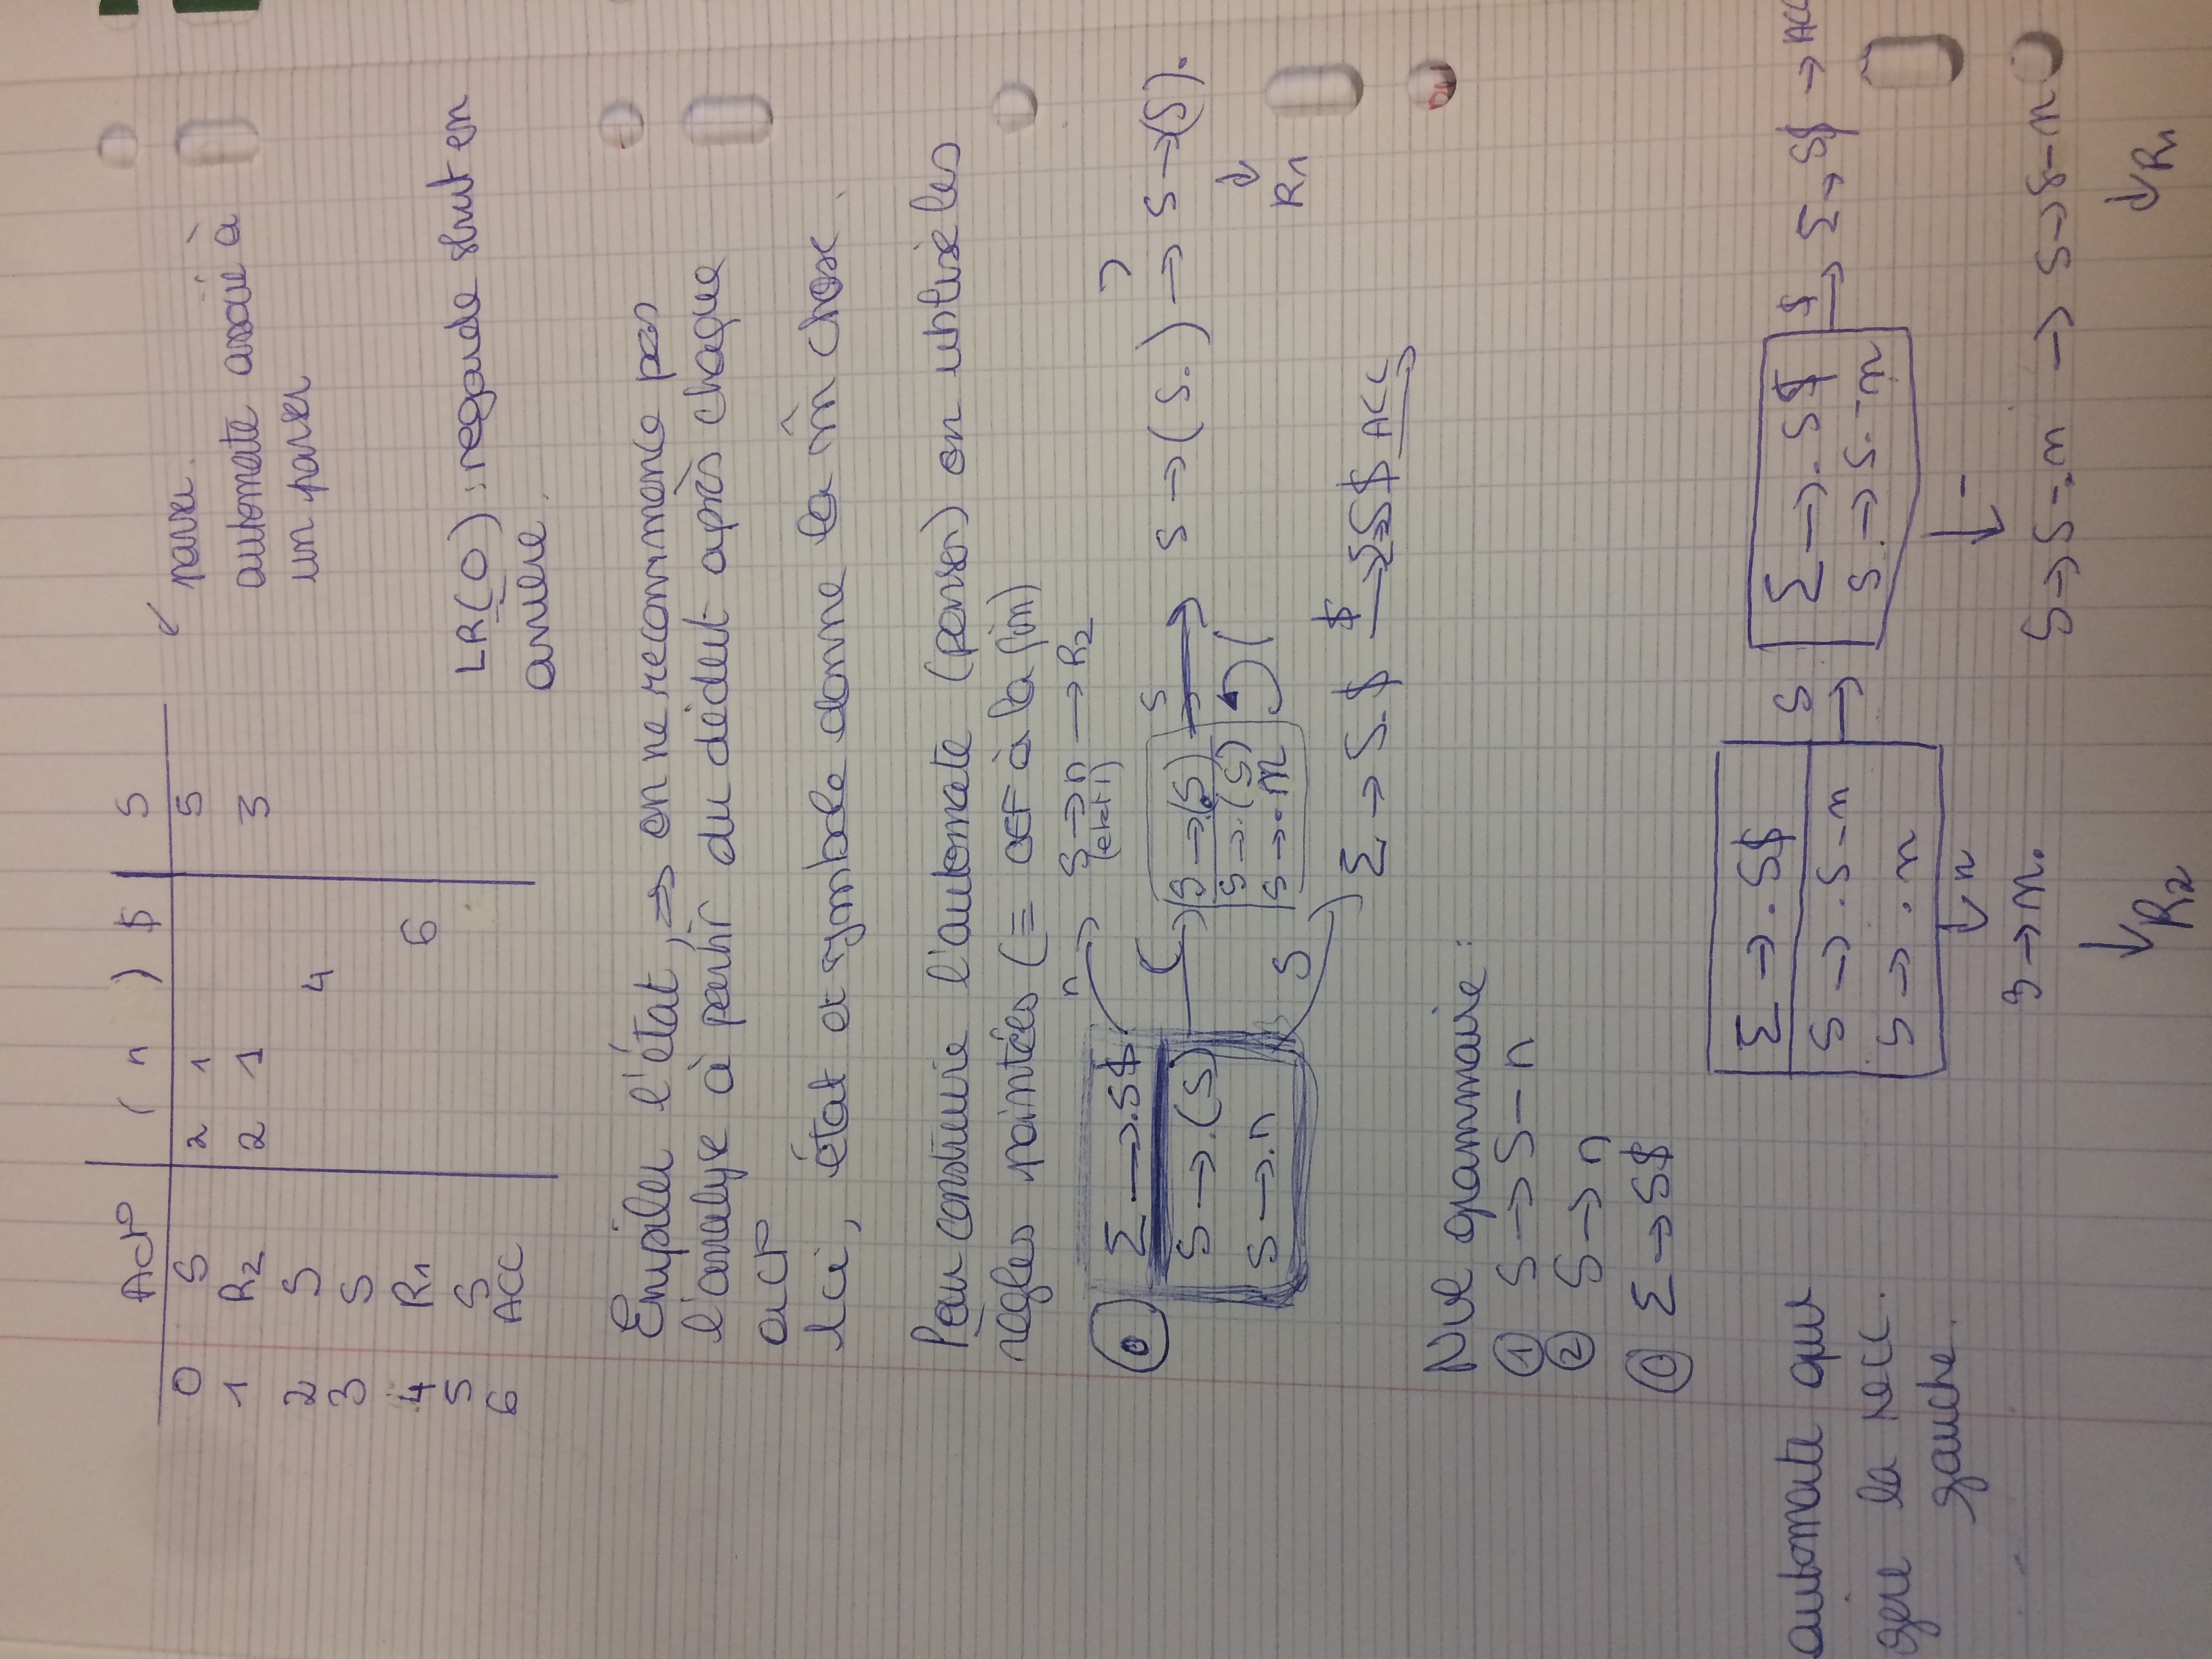 Act° ( n ) $ S
0 S 2 1 5
1 R2 2 1 3
2 S 4
3 S
4 R1 6
5 S
6 ACC
parser.
automate associé à
un parser
LR(0) : regarde strict en
arrière.
Empiler l'état, => on ne recommence pas
l'analyse à partir du début après chaque
act°
Ici, état et symbole donne la m̂ chose.
Pour construire l'automate (parser) on utilise les
règles pointées (≡ à la fin)
0
Σ → .S$
S → .(S)
S → .n
n
S → n → R2
(etat 1)
(
S → (.S)
S → .(S)
S → .n
(
S
S → (S.) → S → (S).
)
R1
S
Σ → S.$ $ → Σ → S$ ACC
Nvl grammaire :
① S → S - n
② S → n
⓪ Σ → S$
automate qui
gère la recc.
gauche.
Σ → . S$
S → . S - n
S → . n
S
Σ → . S$
S → S. - n
$ → Σ → S$ → ACC
n
S → n.
R2
-
S → S - . n → S → S - n
R1